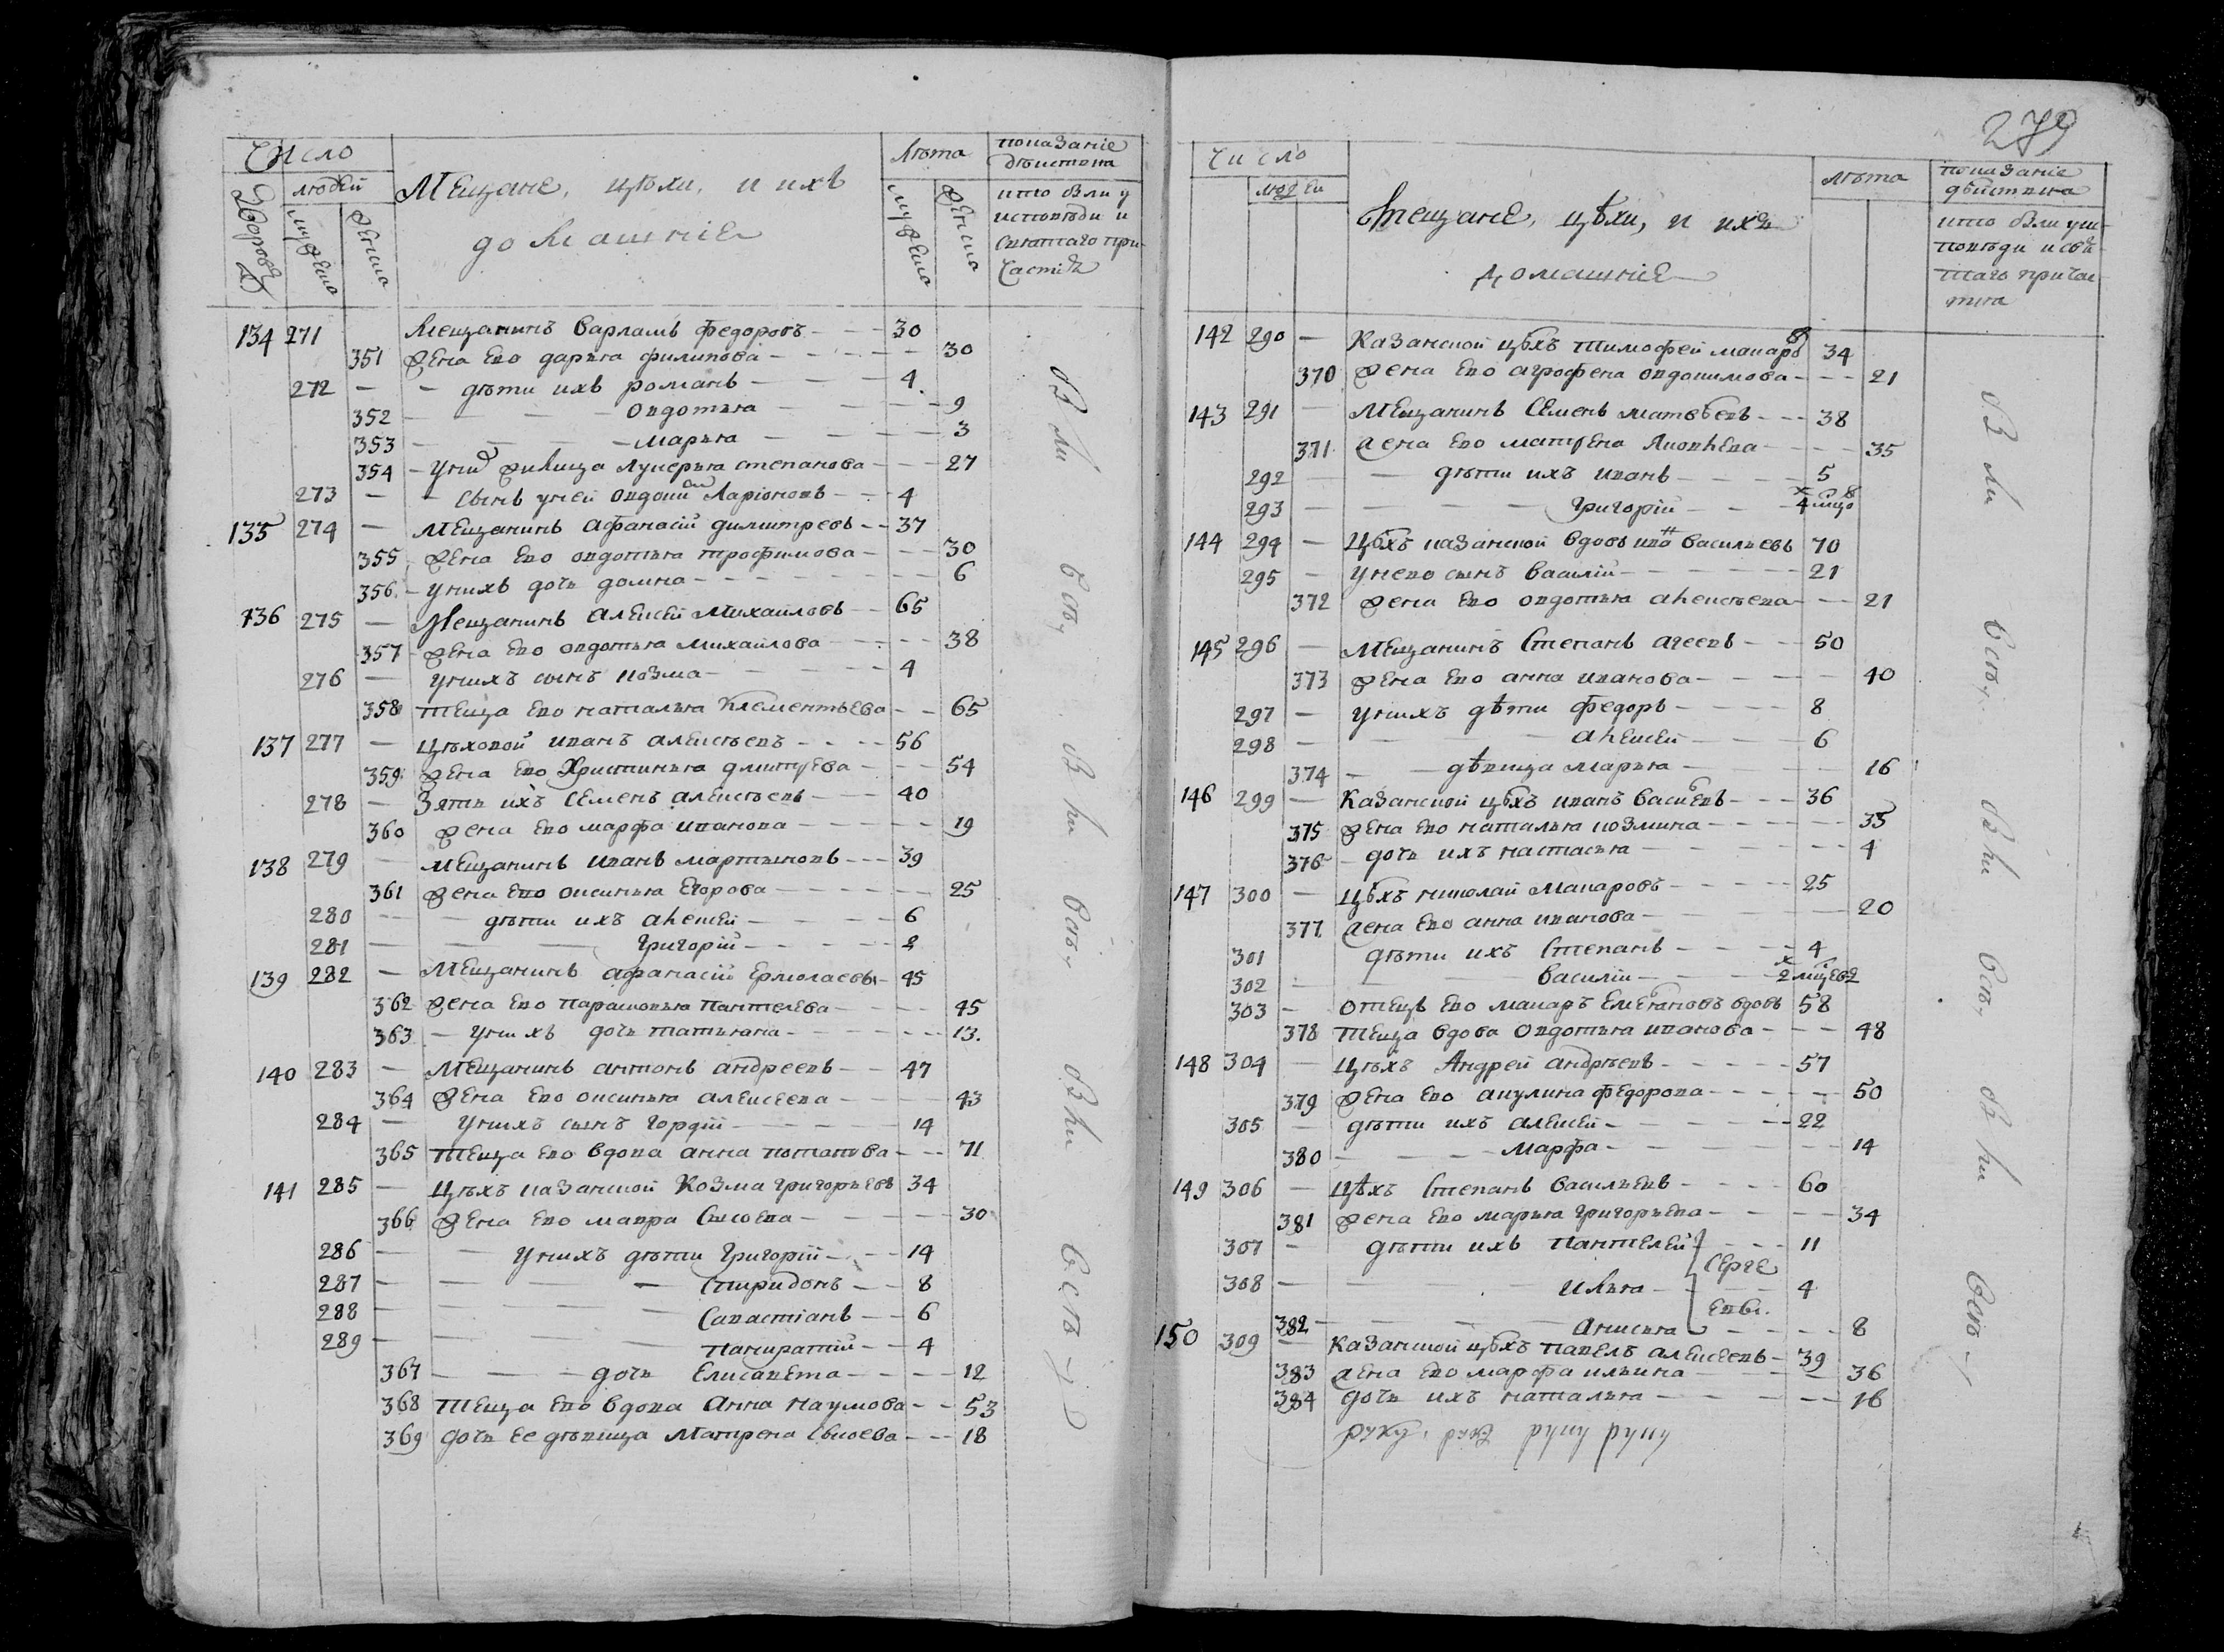 Число
Дворовъ
людей
мужеска
женска
Мещане, цѣхи, и ихъ
домашніе
лѣта
мужеска
женска
показаніе
дѣиства
кто были у
исповѣди и
святаго при-
частия
134 271 Мещанинъ Варламъ федоровъ - - - 30
351 Жена Ево дарья филипова - - - - - - 30
272 - - дѣти ихъ романъ - - - - 4
352 - - - овдотья - - - - 9
353 - - - - марья - - - - 3
354 - унид жилица лукерья степанова - - - 27
273 - - сынъ унеи овдоким Ларіоновъ - - - 4
135 274 - мещанинъ афанасіи димитревъ - - 37
355 жена Ево овдотья трофимова - - - 30
356 - унихъ дочь домна - - - - - - 6
136 275 - Мещанинъ алексѣи Михаиловъ - - 65
357 - жена Ево овдотья михаилова - - - - 38
276 - унихъ сынъ козма - - - - 4
358 теща Ево наталья Клементьева - - 65
137 277 - цѣховои иванъ алексѣевъ - - - - 56
359 жена Ево Христинья дмитрева - - - 54
278 - зять ихъ Семенъ алексѣевъ - - - 40
360 жена Ево марфа иванова - - - - - 19
138 279 - мещанинъ иванъ мартыновъ - - - 39
361 жена Ево оксинья Егорова - - - - - 25
280 - - дѣти ихъ алексеи - - - - 6
281 - - - Григоріи - - - - - 2
139 282 - Мещанинъ афанасіи Ермолаевъ - 45
362 жена Ево парасковья пантелева - - - - 45
363 - унихъ дочь татьяна - - - - - - 13.
140 283 - Мещанинъ антонъ андреевъ - - 47
364 жена Ево оксинья алексеева - - - - 43
284 - унихъ сынъ гордіи - - - - - 14
365 теща Ево вдова анна потапова - - - 71
141 285 - Цѣхъ казанскои Козма григорьевъ 34
366 жена Ево мавра Сысоева - - - - - 30
286 - - унихъ дѣти Григоріи - - - 14
287 - - - - Спиридонъ - - 8
288 - - - - Савастіанъ - - 6
289 - - - - панкратіи - - 4
367 - - - дочь Елисавета - - - - 12
368 теща Ево вдова Анна наумова - - 53
369 дочь ее дѣвица Матрена Сысоева - - - 18
были всѣ, были всѣ, были всѣ
279
число
людеи
Мещане, цѣхи, и ихъ
домашніе
лѣта
показаніе
дѣиства
кто были уис-
повѣди и свя-
таго причас
тия
142 290 - Казанскои цѣхъ тимофеи макаровъ 34
370 жена Ево агрофена овдокимова - - - 21
143 291 - Мещанинъ Семенъ матвѣевъ - - - 38
371 жена Ево матрена Яковлева - - - - 35
292 - - дѣти ихъ иванъ - - - - 5
293 - - - - Григоріи - - - 4
144 294 - Цѣхъ казанскои вдовъ иво Васильевъ 70
295 - унево сынъ василіи - - - - - - 21
372 жена Ево овдотья алексѣева - - - 21
145 296 - Мещанинъ Степанъ агеевъ - - - 50
373 жена Ево анна иванова - - - - - 40
297 - унихъ дѣти федоръ - - - - 8
298 - - - - алексеи - - - 6
374 - - дѣвица марья - - - - 16
146 299 - Казанскои цѣхъ иванъ васиевъ - - - 36
375 жена Ево наталья козмина - - - - - - 35
376 - дочь ихъ настасья - - - - - - 4
147 300 - цѣхъ николаи Макаровъ - - - - - 25
377 жена Ево анна иванова - - - - - - 20
301 дѣти ихъ Степанъ - - - - 4
302 - - - василіи - - - - 2
303 - отецъ Ево макаръ Емельяновъ вдовъ 58
378 теща вдова Овдотья иванова - - - 48
148 304 - Цѣхъ Андреи андрѣевъ - - - - - 57
379 жена Ево акулина федорова - - - - - 50
305 - дѣти ихъ алексеи - - - - - - 22
380 - - - - марфа - - - - - - 14
149 306 - цѣхъ Степанъ васильевъ - - - - 60
381 жена Ево марья григорьева - - - - - 34
307 - дѣти ихъ пантелеи - - - 11
Серге
308 - - - илья - - - - 4
евы.
382 - - - - Анисья - - - - 8
150 309 - Казанскои цѣхъ павелъ алексеевъ - 39
383 жена Ево марфа ильина - - - - - 36
384 дочь ихъ наталья - - - - - - 16
были всѣ, были всѣ, были всѣ